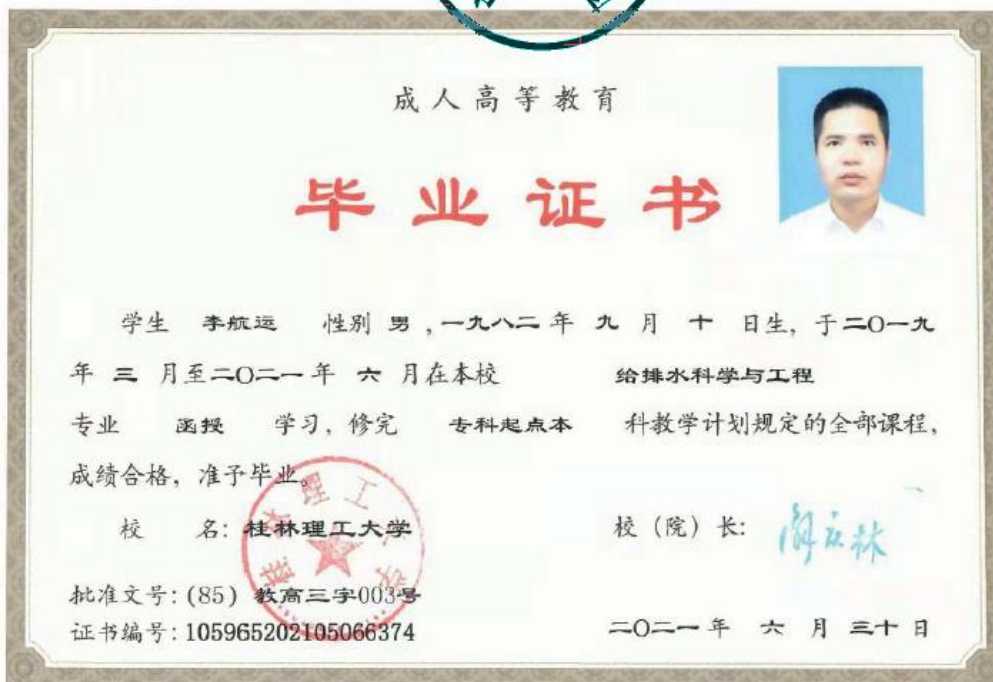 成人高等教育
毕业证书
学生 李航运 性别 男 ,一九八二 年 九 月 十 日生, 于二〇一九
年 三 月至二〇二一 年 六 月在本校 给排水科学与工程
专业 函授 学习, 修完 专科起点本 科教学计划规定的全部课程,
成绩合格, 准予毕业。
校 名: 桂林理工大学 校 (院) 长:
批准文号: (85) 教高三字003号
证书编号: 105965202105066374 二〇二一 年 六 月 三十 日
桂林理工大学